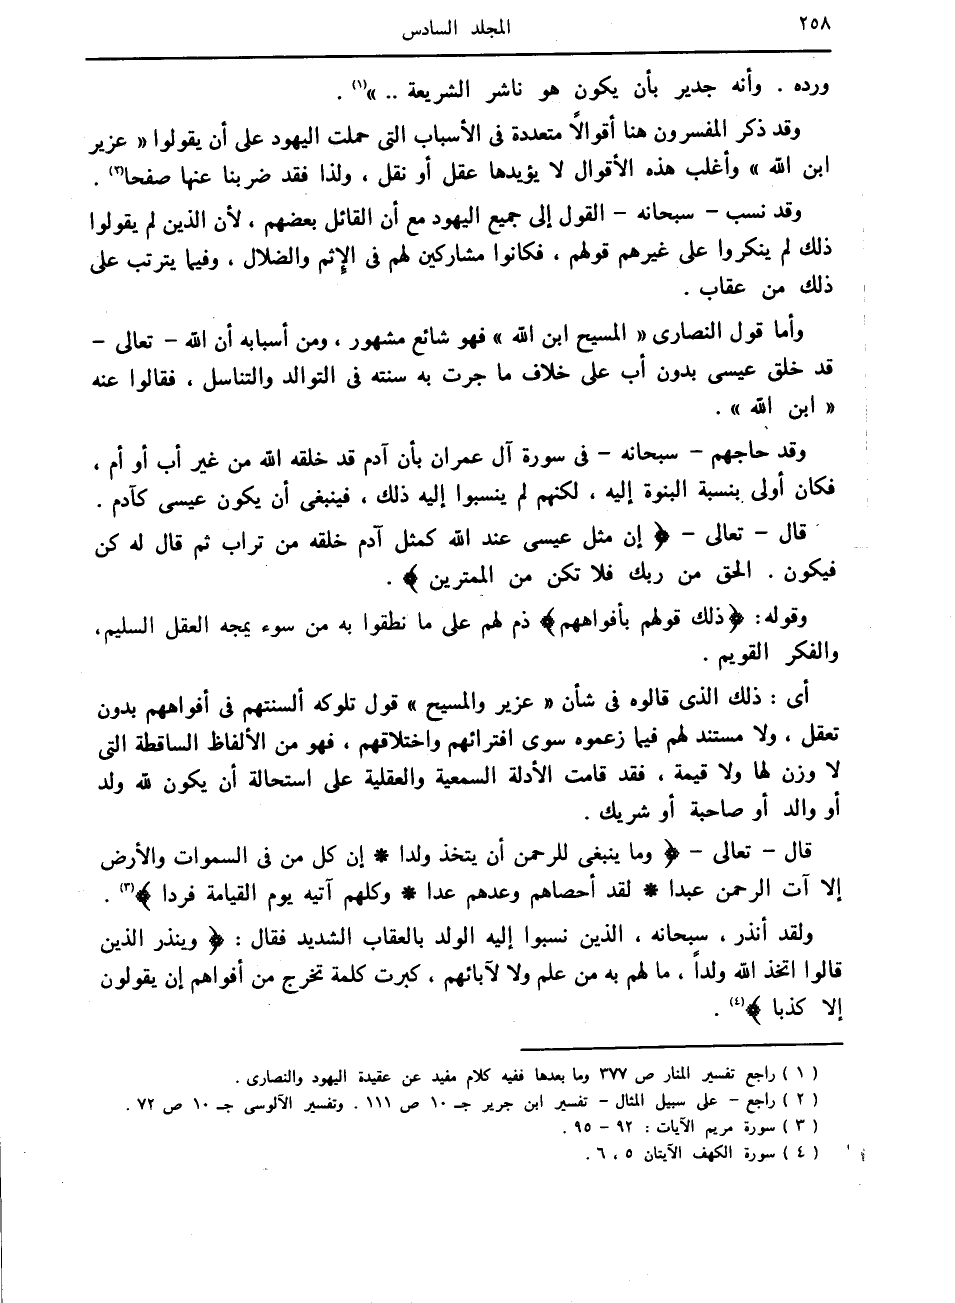 ٢٥٨
المجلد السادس
ورده . وأنه جدير بأن يكون هو ناشر الشريعة .. »(١) .
وقد ذكر المفسرون هنا أقوالاً متعددة فى الأسباب التى حملت اليهود على أن يقولوا « عزير
ابن الله » وأغلب هذه الأقوال لا يؤيدها عقل أو نقل ، ولذا فقد ضربنا عنها صفحا(٢) .
وقد نسب - سبحانه - القول إلى جميع اليهود مع أن القائل بعضهم ، لأن الذين لم يقولوا
ذلك لم ينكروا على غيرهم قولهم ، فكانوا مشاركين لهم فى الإثم والضلال ، وفيما يترتب على
ذلك من عقاب .
وأما قول النصارى « المسيح ابن الله » فهو شائع مشهور ، ومن أسبابه أن الله - تعالى -
قد خلق عيسى بدون أب على خلاف ما جرت به سنته فى التوالد والتناسل ، فقالوا عنه
« ابن الله » .
وقد حاجهم - سبحانه - فى سورة آل عمران بأن آدم قد خلقه الله من غير أب أو أم ،
فكان أولى بنسبة البنوة إليه ، لكنهم لم ينسبوا إليه ذلك ، فينبغى أن يكون عيسى كآدم .
قال - تعالى - ﴿ إن مثل عيسى عند الله كمثل آدم خلقه من تراب ثم قال له كن
فيكون . الحق من ربك فلا تكن من الممترين ﴾ .
وقوله: ﴿ذلك قولهم بأفواههم﴾ ذم لهم على ما نطقوا به من سوء يمجه العقل السليم،
والفكر القويم .
أى : ذلك الذى قالوه فى شأن « عزير والمسيح » قول تلوكه ألسنتهم فى أفواههم بدون
تعقل ، ولا مستند لهم فيما زعموه سوى افترائهم واختلاقهم ، فهو من الألفاظ الساقطة التى
لا وزن لها ولا قيمة ، فقد قامت الأدلة السمعية والعقلية على استحالة أن يكون لله ولد
أو والد أو صاحبة أو شريك .
قال - تعالى - ﴿ وما ينبغى للرحمن أن يتخذ ولدا * إن كل من فى السموات والأرض
إلا آت الرحمن عبدا * لقد أحصاهم وعدهم عدا * وكلهم آتيه يوم القيامة فردا ﴾(٣) .
ولقد أنذر ، سبحانه ، الذين نسبوا إليه الولد بالعقاب الشديد فقال : ﴿ وينذر الذين
قالوا اتخذ الله ولداً ، ما لهم به من علم ولا لآبائهم ، كبرت كلمة تخرج من أفواهم إن يقولون
إلا كذبا ﴾(٤) .
( ١ ) راجع تفسير المنار ص ٣٧٧ وما بعدها ففيه كلام مفيد عن عقيدة اليهود والنصارى .
( ٢ ) راجع - على سبيل المثال - تفسير ابن جرير جـ ١٠ ص ١١١ . وتفسير الآلوسى جـ ١٠ ص ٧٢ .
( ٣ ) سورة مريم الآيات : ٩٢ - ٩٥ .
( ٤ ) سورة الكهف الآيتان ٥ ، ٦ .